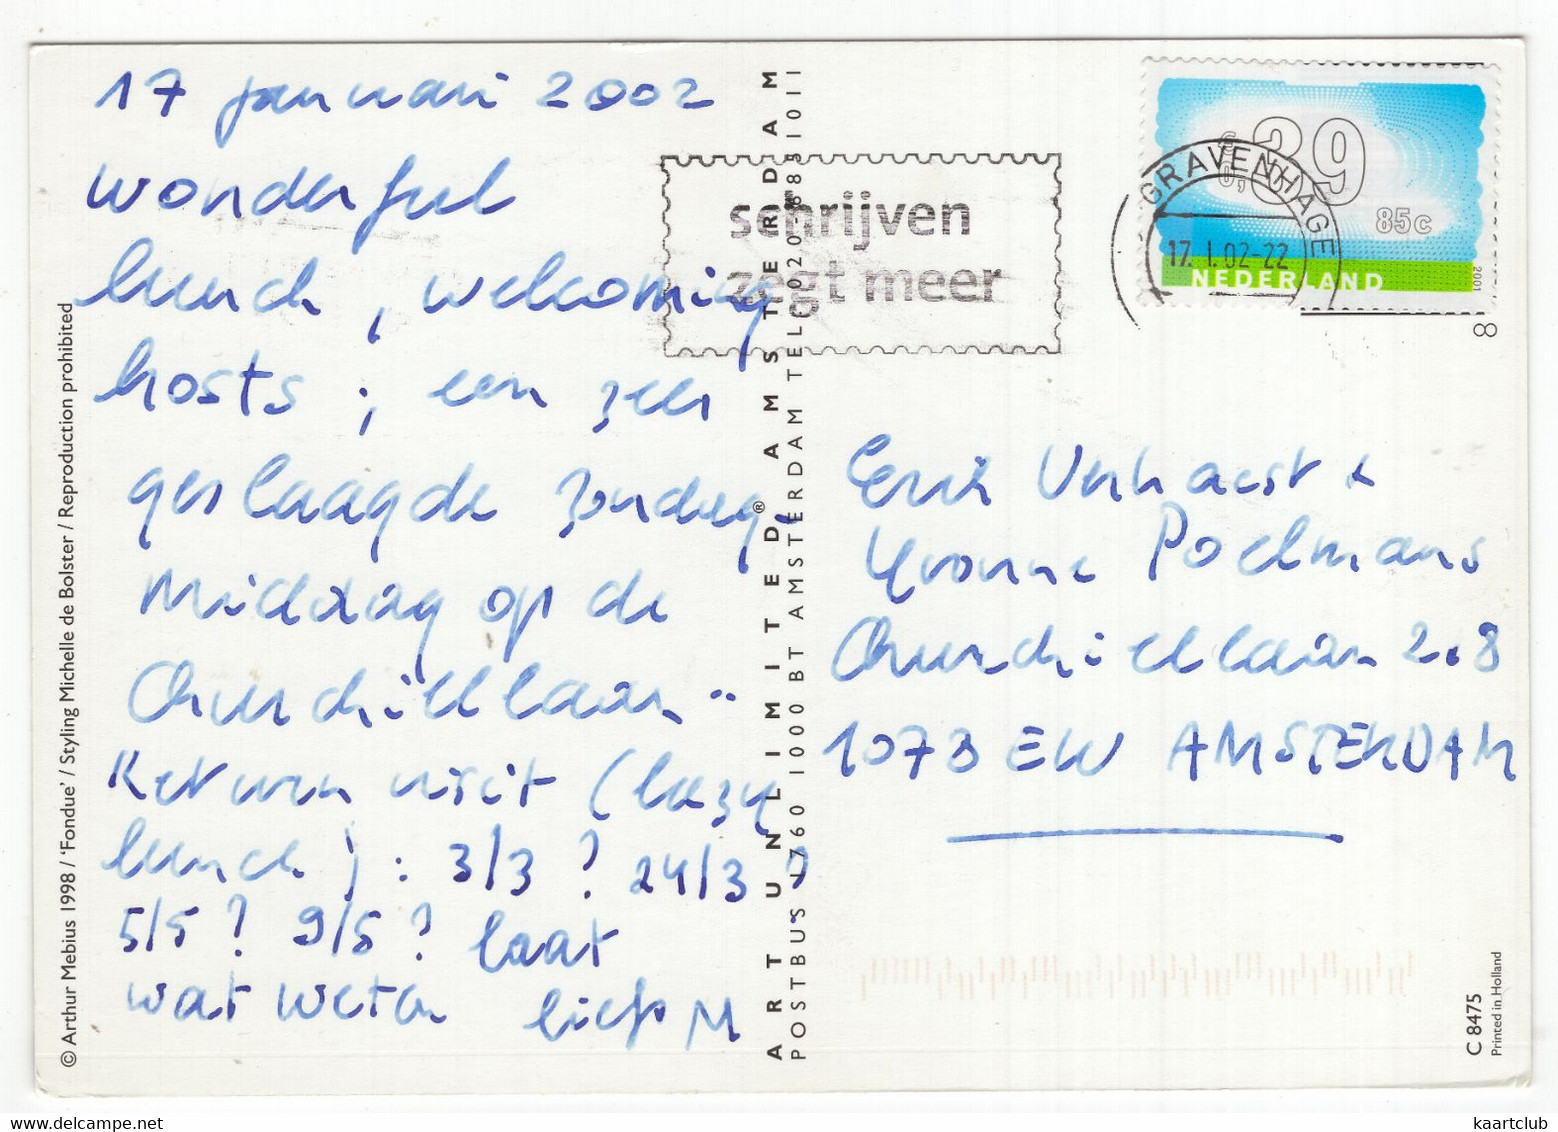 17 januari 2002
wonderful
lunch, welcoming
hosts; een zeer
geslaagde zondag
middag op de
Churchilllaan..
Return visit (lazy
lunch): 3/3? 24/3?
5/5? 9/5? laat
wat weten liefs M
© Arthur Mebius 1998 / 'Fondue' / Styling Michelle de Bolster / Reproduction prohibited
ART UNLIMITED® AMSTERDAM
POSTBUS 1760 1000 BT AMSTERDAM TEL: 020-6851011
schrijven
zegt meer
GRAVENHAGE
17.I.02-22
€ 0,39
85c
NEDERLAND
2001
8
Erik Verhaest &
Yvonne Poelmans
Churchilllaan 2.8
1073 EW AMSTERDAM
C 8475
Printed in Holland
kaartclub